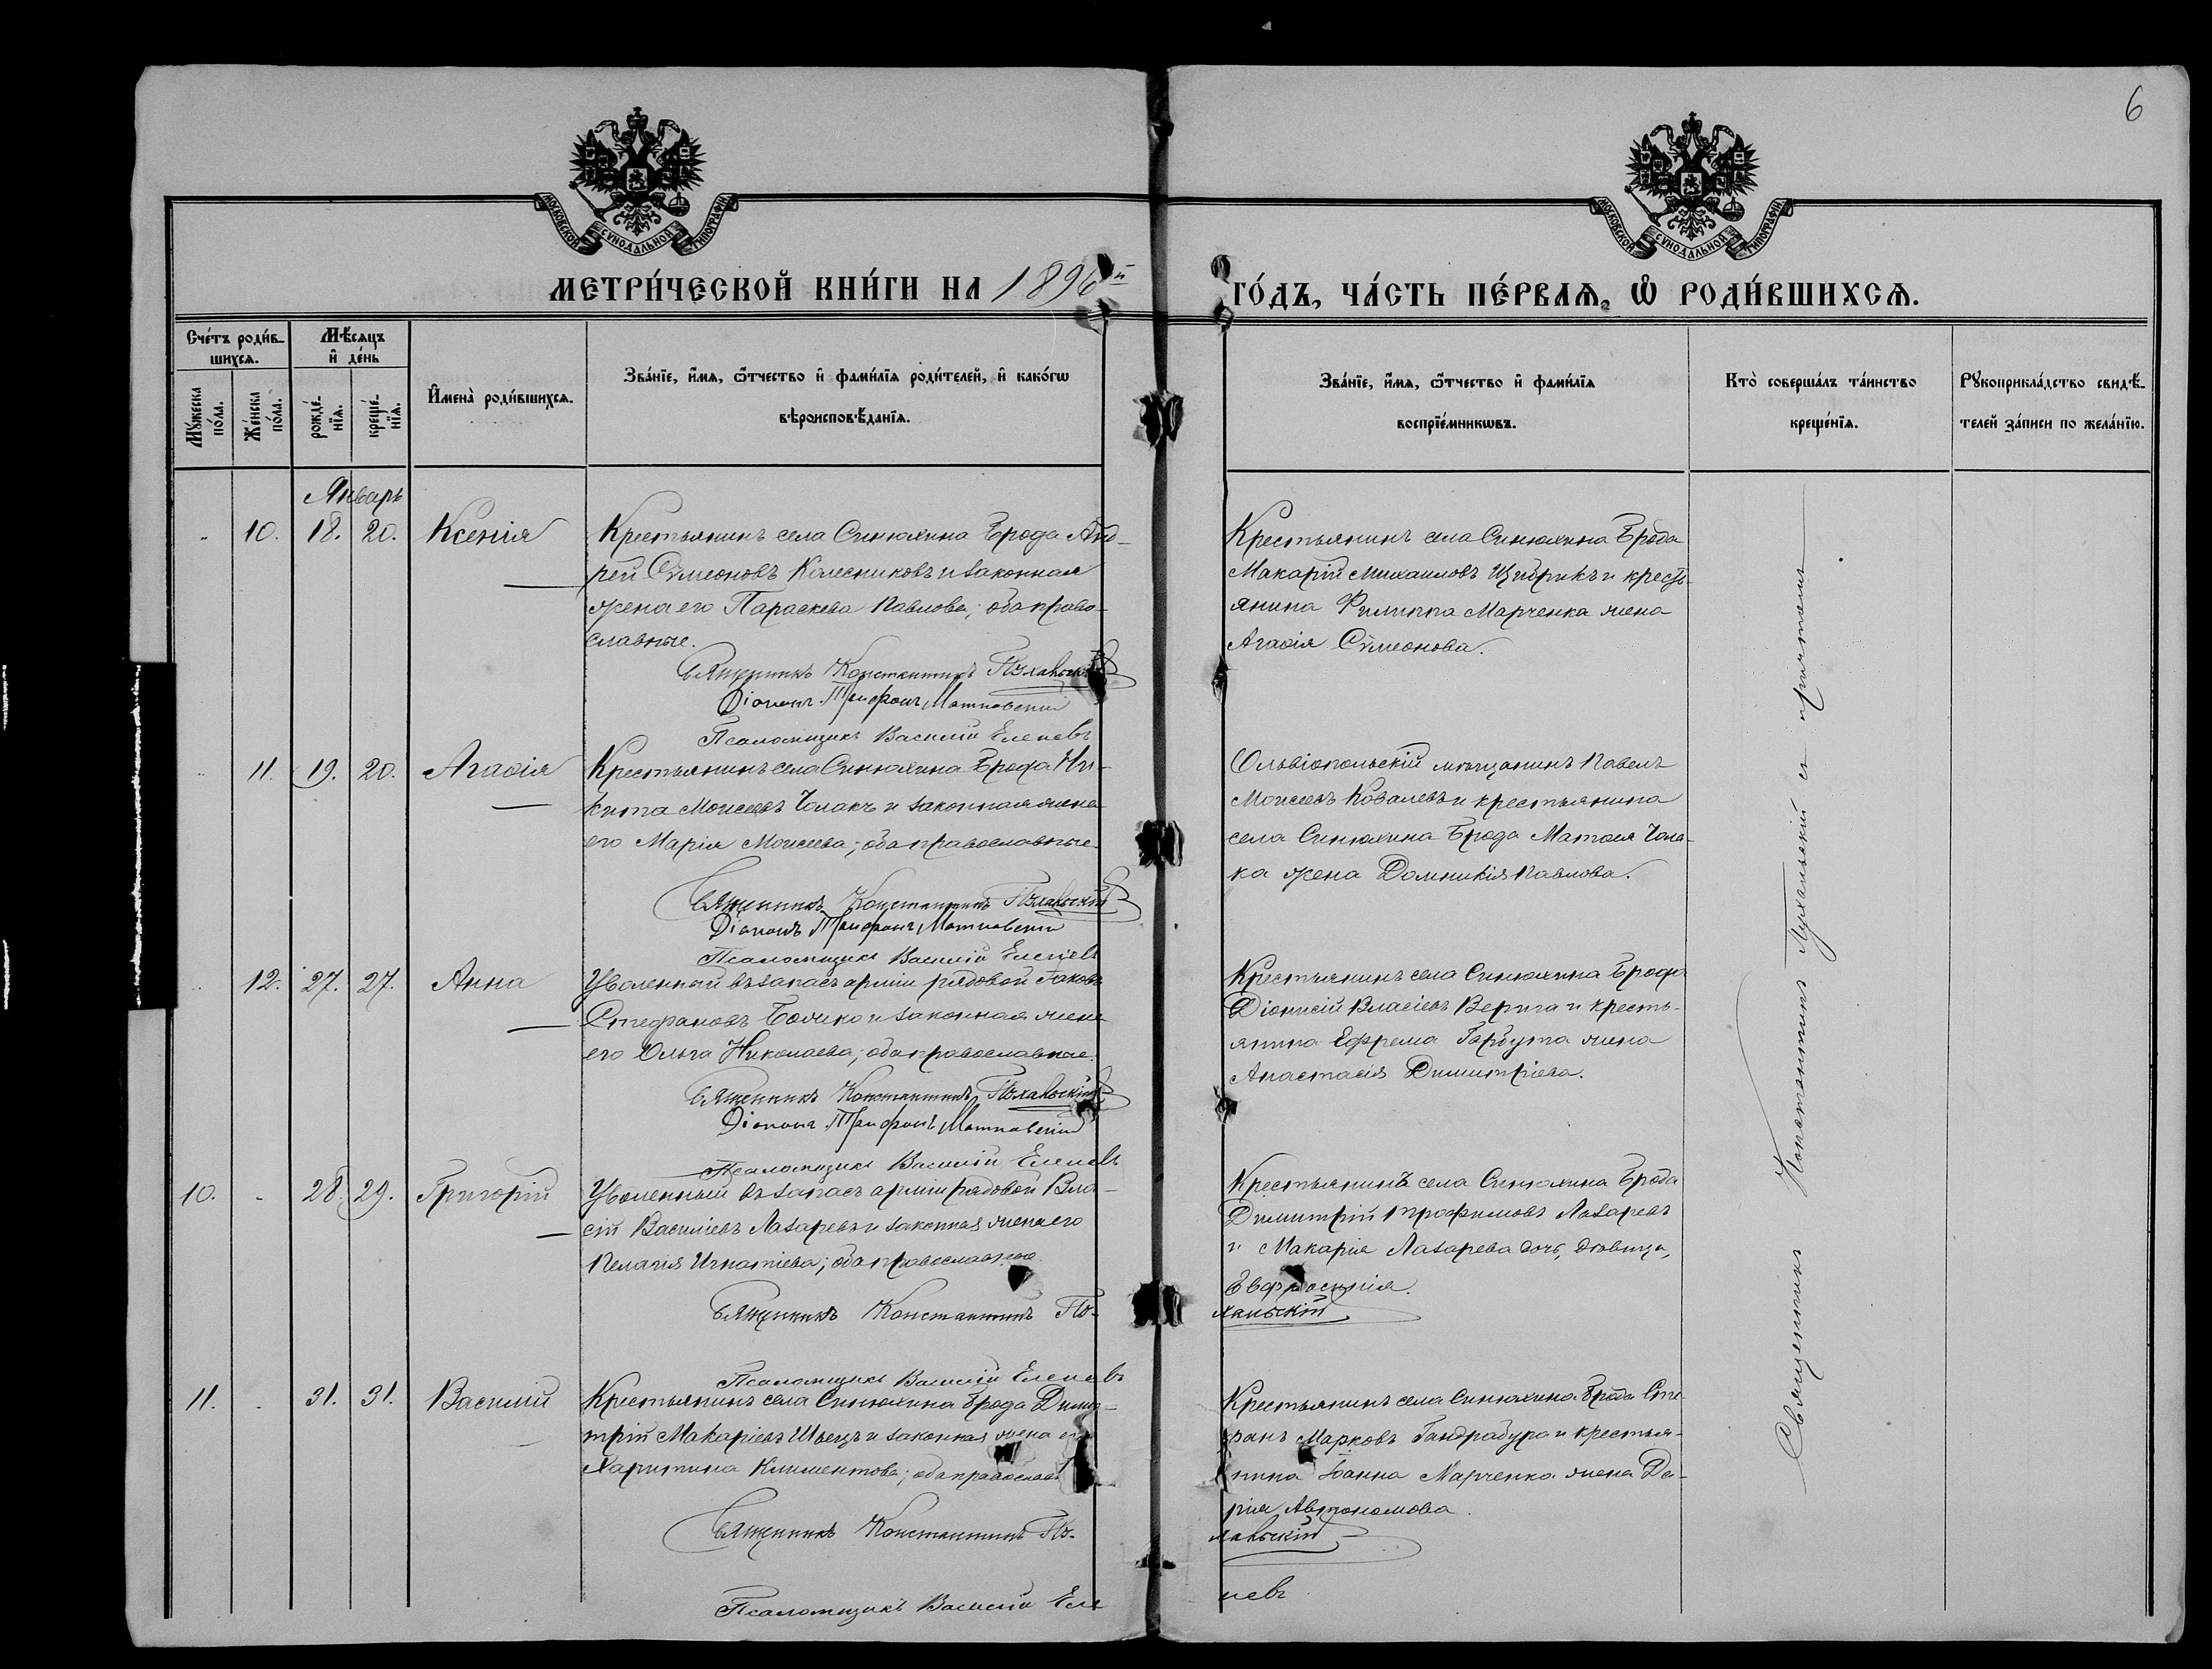 6
МОСКОВСКОЙ СУНОДАЛЬНОЙ ТИПОГРАФІИ
МОСКОВСКОЙ СУНОДАЛЬНОЙ ТИПОГРАФІИ
МЕТРИ́ЧЕСКОЙ КНИ́ГИ НА 1896й ГО́ДЪ, ЧА́СТЬ ПЕ́РВАѦ, Ѡ РОДИ́ВШИХСѦ.
Сче́тъ роди́в-
шихсѧ.
Мꙋ́жеска по́ла.
Же́нска по́ла.
Мѣ́сѧцъ
и҆ де́нь
рожде́-
нїѧ.
креще́-
нїѧ.
И҆мена̀ роди́вшихсѧ.
Зва́нїе, и҆́мѧ, ѻ҆́тчество и҆ фами́лїѧ роди́телей, и҆ како́гѡ
вѣроисповѣ́данїѧ.
Зва́нїе, и҆́мѧ, ѻ҆́тчество и҆ фами́лїѧ
воспрїе́мникѡвъ.
Кто̀ соверша́лъ та́инство
креще́нїѧ.
Рꙋкоприкла́дство свидѣ́-
телей за́писи по жела́нїю.
Январь
10. 18. 20. Ксенія
Крестьянинъ села Синюхина Брода Анд-
рей Сѵмеоновъ Колесниковъ и законная
жена его Параскева Павлова; оба право-
славные.
Священникъ Константинъ Пухальскій
Діаконъ Трифонъ Мотковскій
Псаломщикъ Василій Еленевъ
Крестьянинъ села Синюхина Брода
Макарій Михаиловъ Цибрикъ и кресть-
янина Филиппа Марченка жена
Агаѳія Сѵмеонова.
11. 19. 20. Агаѳія
Крестьянинъ села Синюхина Брода Ни-
кита Моисеевъ Чолакъ и законная жена
его Марія Моисеева; оба православные
Священникъ Константинъ Пухальскій
Діаконъ Трифонъ Мотковскій
Псаломщикъ Василій Еленевъ
Ольвіопольскій мѣщанинъ Павелъ
Моисеевъ Ковалевъ и крестьянина
села Синюхина Брода Матѳея Чола-
ка жена Домникія Павлова.
12. 27. 27. Анна
Уволенный въ запасъ арміи рядовой Іаковъ
Стефановъ Божко и законная жена
его Ольга Николаева; оба православные.
Священникъ Константинъ Пухальскій
Діаконъ Трифонъ Мотковскій
Псаломщикъ Василій Еленевъ
Крестьянинъ села Синюхина Брода
Діонисій Власіевъ Верига и кресть-
янина Ефрема Гарбуза жена
Анастасія Димитріева.
10. 28. 29. Григорій
Уволенный въ запасъ арміи рядовой Вла-
сій Василіевъ Лазаревъ и законная жена его
Пелагія Игнатіева; оба православные
Священникъ Константинъ Пу-
хальскій
Псаломщикъ Василій Еленевъ
Крестьянинъ села Синюхина Брода
Димитрій Трофимовъ Лазаревъ
и Макарія Лазарева дочь, дѣвица,
Евфросинія.
11. 31. 31. Василій
Крестьянинъ села Синюхина Брода Дими-
трій Макаріевъ Швецъ и законная жена его
Харитина Климентова; оба православ
Священникъ Константинъ Пу-
хальскій
Псаломщикъ Василій Еле
невъ
Крестьянинъ села Синюхина Брода Сте-
фанъ Марковъ Гандрабура и крестья-
нина Іоанна Марченко жена Да-
рія Автономова.
Священникъ Константинъ Пухальскій съ причтомъ